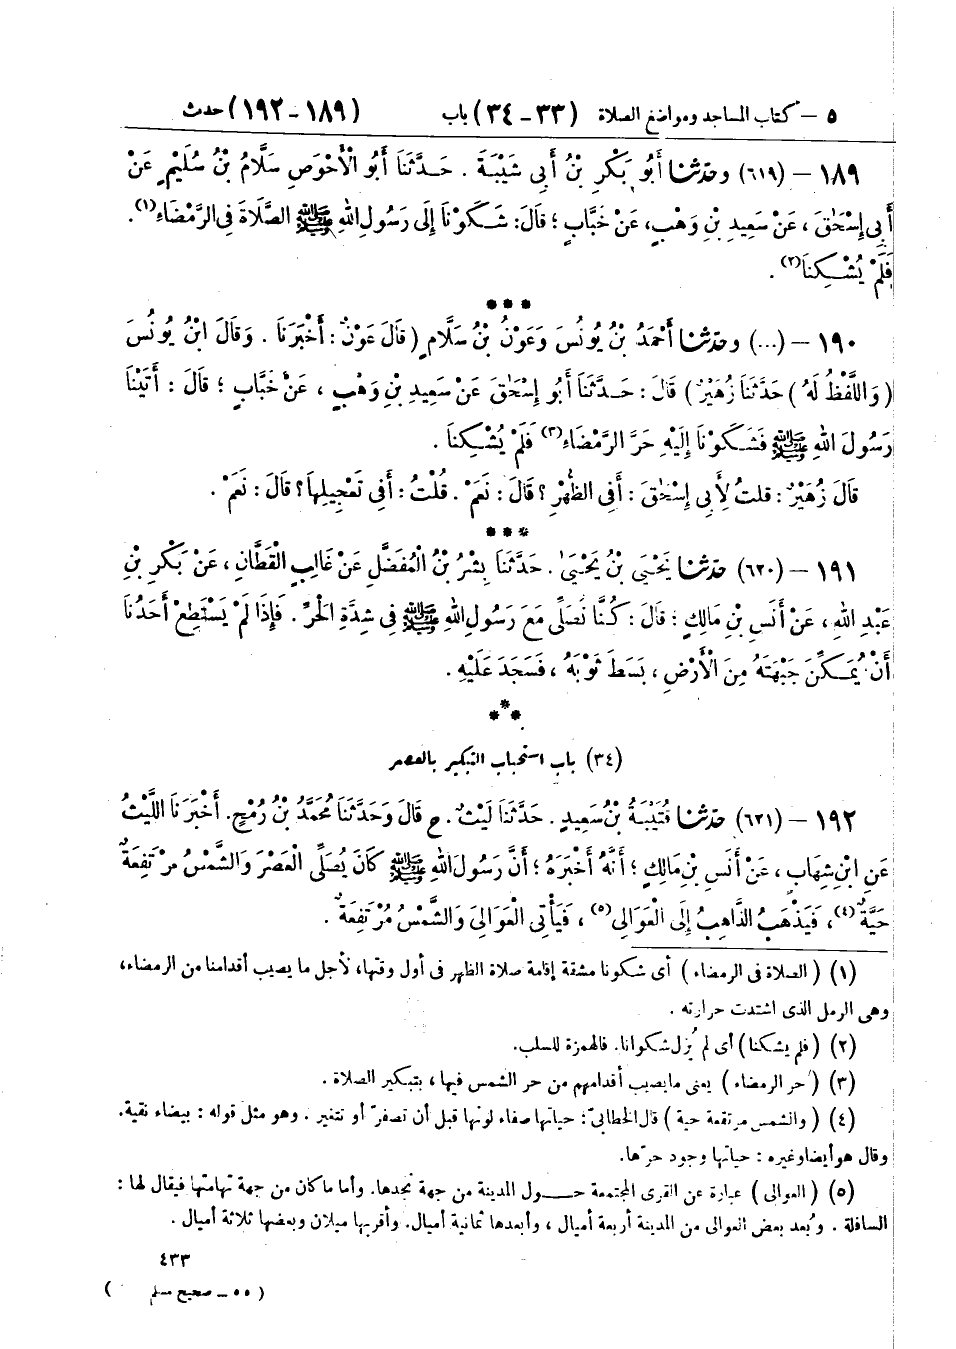 ٥ – كتاب المساجد ومواضع الصلاة (٣٣ - ٣٤) باب (١٨٩ - ١٩٢) حدث
١٨٩ – (٦١٩) وحدثنا أَبُو بَكْرِ بْنُ أَبِي شَيْبَةَ . حَدَّثَنَا أَبُو الْأَحْوَصِ سَلَّامُ بْنُ سُلَيْمٍ عَنْ
أَبِي إِسْحَاقَ ، عَنْ سَعِيدِ بْنِ وَهْبٍ، عَنْ خَبَّابٍ ؛ قَالَ: شَكَوْنَا إِلَى رَسُولِ اللهِ ﷺ الصَّلَاةَ فِي الرَّمْضَاءِ(١).
فَلَمْ يُشْكِنَا(٢) .
***
١٩٠ – (...) وحدثنا أَحْمَدُ بْنُ يُونُسَ وَعَوْنُ بْنُ سَلَّامٍ ( قَالَ عَوْنٌ : أَخْبَرَنَا . وَقَالَ ابْنُ يُونُسَ
( وَاللَّفْظُ لَهُ ) حَدَّثَنَا زُهَيْرٌ ) قَالَ : حَدَّثَنَا أَبُو إِسْحَاقَ عَنْ سَعِيدِ بْنِ وَهْبٍ ، عَنْ خَبَّابٍ ؛ قَالَ : أَتَيْنَا
رَسُولَ اللهِ ﷺ فَشَكَوْنَا إِلَيْهِ حَرَّ الرَّمْضَاءِ(٣) فَلَمْ يُشْكِنَا .
قَالَ زُهَيْرٌ : قلتُ لِأَبِي إِسْحَاقَ : أَفِي الظُّهْرِ ؟ قَالَ : نَعَمْ . قُلْتُ : أَفِي تَعْجِيلِهَا ؟ قَالَ : نَعَمْ .
***
١٩١ – (٦٢٠) حدثنا يَحْيَى بْنُ يَحْيَى . حَدَّثَنَا بِشْرُ بْنُ الْمُفَضَّلِ عَنْ غَالِبٍ الْقَطَّانِ ، عَنْ بَكْرِ بْنِ
عَبْدِ اللهِ ، عَنْ أَنَسِ بْنِ مَالِكٍ ؛ قَالَ : كُنَّا نُصَلِّي مَعَ رَسُولِ اللهِ ﷺ فِي شِدَّةِ الْحَرِّ . فَإِذَا لَمْ يَسْتَطِعْ أَحَدُنَا
أَنْ يُمَكِّنَ جَبْهَتَهُ مِنَ الْأَرْضِ ، بَسَطَ ثَوْبَهُ ، فَسَجَدَ عَلَيْهِ .
***
(٣٤) باب استحباب التبكير بالعصر
١٩٢ – (٦٢١) حدثنا قُتَيْبَةُ بْنُ سَعِيدٍ . حَدَّثَنَا لَيْثٌ . ح قَالَ وَحَدَّثَنَا مُحَمَّدُ بْنُ رُمْحٍ. أَخْبَرَنَا اللَّيْثُ
عَنِ ابْنِ شِهَابٍ ، عَنْ أَنَسِ بْنِ مَالِكٍ ؛ أَنَّهُ أَخْبَرَهُ ؛ أَنَّ رَسُولَ اللهِ ﷺ كَانَ يُصَلِّي الْعَصْرَ وَالشَّمْسُ مُرْتَفِعَةٌ
حَيَّةٌ(٤)، فَيَذْهَبُ الذَّاهِبُ إِلَى الْعَوَالِي(٥) ، فَيَأْتِي الْعَوَالِيَ وَالشَّمْسُ مُرْتَفِعَةٌ .
(١) ( الصلاة فى الرمضاء ) أى شكونا مشقة إقامة صلاة الظهر فى أول وقتها، لأجل ما يصيب أقدامنا من الرمضاء،
وهى الرمل الذى اشتدت حرارته .
(٢) ( فلم يشكنا ) أى لم يُزل شكوانا. فالهمزة للسلب.
(٣) ( حر الرمضاء ) يعنى ما يصيب أقدامهم من حر الشمس فيها ، بتبكير الصلاة .
(٤) ( والشمس مرتفعة حية ) قال الخطابيّ : حياتها صفاء لونها قبل أن تصفرّ أو تتغير . وهو مثل قوله : بيضاء نقية.
وقال هو أيضا وغيره : حياتها وجود حرّها.
(٥) ( العوالى ) عبارة عن القرى المجتمعة حول المدينة من جهة نجدها. وأما ما كان من جهة تهامتها فيقال لها :
السافلة . وبُعد بعض العوالى من المدينة أربعة أميال ، وأبعدها ثمانية أميال. وأقربها ميلان وبعضها ثلاثة أميال .
٤٣٣
( ٥٥ – صحيح مسلم )